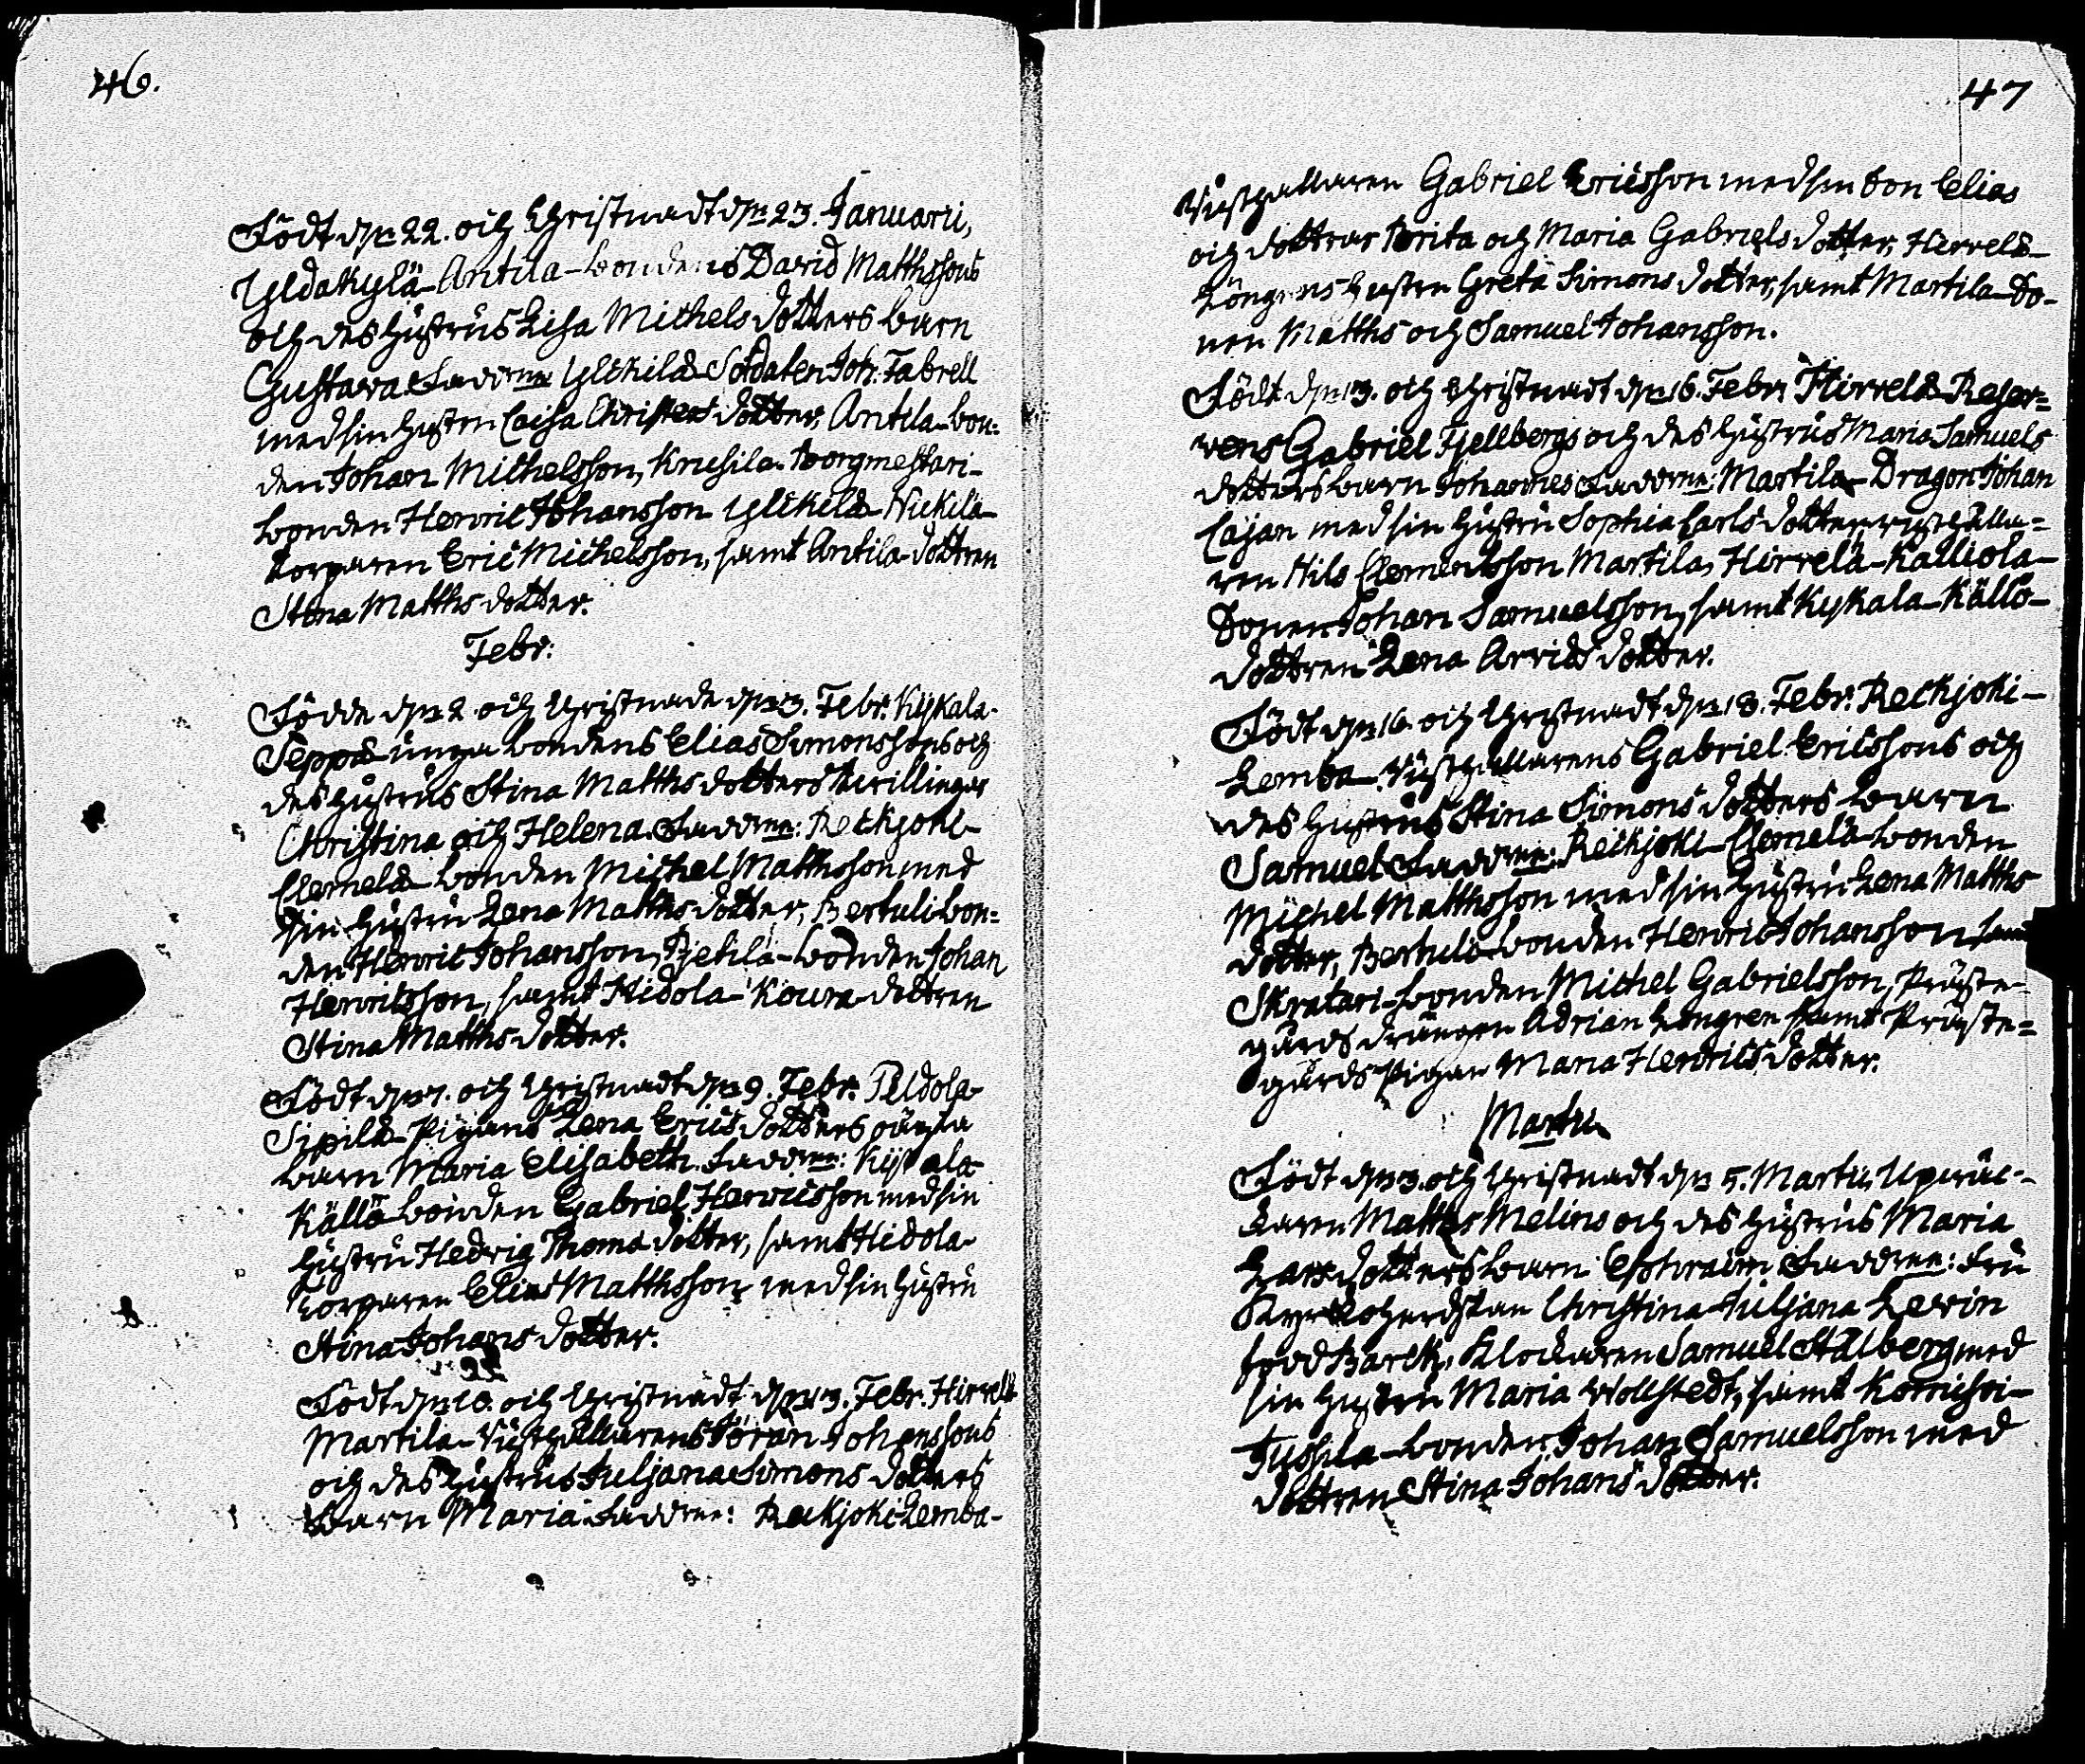 46.
Födt d. 22. och Christnadt d. 23. Januarii,
Yldäkylä-Antila-bondens David Matthssons
och des hustrus Lisa Michels dotters barn
Gustava. Faddrne: Ylikilä Soldaten Joh: Fabrell
med sin hustru Caisa Christers dotter, Antila-bon-
den Johan Michelsson, Krusila-Borgmestari-
bonden Henric Johansson Ylikilä-Nickilä-
torparen Eric Michelsson, samt Antila-dottren
Stina Matths dotter.
Febr:
Födde d. 2. och Christnade d. 3. Febr. Kykala-
Seppä-unga bondens Elias Simonssons och
des hustrus Stina Matths dotters twillingar
Christina och Helena. Faddrne: Reckjoki-
Clemelä-bonden Michel Matthsson med
sin hustru Lena Matths dotter, Bertuli bon-
den Henric Johansson, Pjetilä-bonden Johan
Henricsson, samt Hidola-Koura-dottren
Stina Matths dotter.
Födt d. 7. och Christnadt d. 9. Febr. Peldola-
Sipilä-Pigans Lena Erics dotters oägta
barn Maria Elisabeth. Faddrne: Kykala-
Källö bonden Gabriel Henricsson med sin
hustru Hedvig Thomæ dotter, samt Hidola-
torparen Elias Matthsson med sin hustru
Stina Johans dotter.
Födt d. 10. och Christnadt d. 13. Febr. Hirvelä-
Martila-Rusthållarens Jöran Johanssons
och des hustrus Juljana Simons dotters
barn Maria. Faddrne: Reckjoki-Lemba-
47
Rusthållaren Gabriel Ericsson med sin Son Elias
och dottrar Brita och Maria Gabriels dotter, Hervelä-
Löngrens hustru Greta Simons dotter, samt Martila-So-
nen Matths och Samuel Johansson.
Födt d. 13. och Christnadt d. 16. Febr. Hirvelä-Reser-
vens Gabriel Fjellbergs och des hustrus Maria Samuels
dotters barn Johannes. Faddrne: Martila-Dragon Johan
Cajan med sin hustru Sophia Carls dotter, rusthålla-
ren Nils Clemetsson Martila, Hirvelä-Kalliola-
Sonen Johan Samuelsson, samt Kykala-Källö-
dottren Lena Arvids dotter.
Födt d. 16. och Christnadt d. 18. Febr. Reckjoki-
Lemba-Rusthållarens Gabriel Ericssons och
des hustrus Stina Simons dotters barn
Samuel. Faddrne: Reckjoki-Clemelä-bonden
Michel Matthsson med sin hustru Lena Matths
dotter, Bertula-bonden Henric Johansson, samt
Skratari-bonden Michel Gabrielsson, Präste-
gårds drängen Adrian Löngren samt Präste-
gårds Pigan Maria Henrics dotter.
Martii
Födt d. 3. och Christnadt d. 5. Martii, Upwäc-
karen Matths Melins och des hustrus Maria
Lars dotters barn Ephraim. Faddrne: Fru
Kyrkoherdskan Christina Juljana Levin
född Barck, Klockaren Samuel Stålberg med
sin hustru Maria Wollstedt, samt Korvensoi-
Tussila-bonden Johan Samuelsson med
dottren Stina Johans dotter.